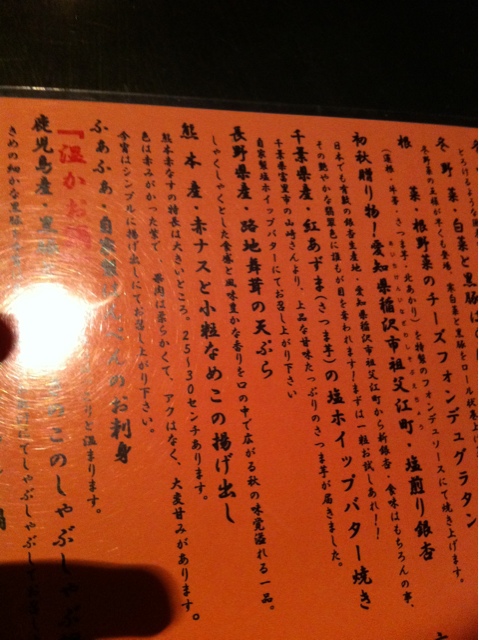 とろけるような
冬野菜・白菜と黒豚
冬野菜の王様が早くも登場、
根菜・根野菜のチーズフォンデュグラタン
（蓮根・牛蒡・さつま芋・北あかり）を特製のフォンデュソースにて焼き上げます。
初秋贈り物！愛知県稲沢市祖父江町・塩煎り銀杏
日本でも有数の銀杏生産地、愛知県稲沢市祖父江町から新銀杏・食味はもちろんの事、
その艶やかな翡翠色に誰もが目を奪われます！まずは一粒お試しあれ！！
千葉県産・紅あずま（さつま芋）の塩ホイップバター焼き
千葉県富里市の山崎さんより、上品な甘味たっぷりのさつま芋が届きました。
自家製塩ホイップバターにてお召し上がり下さい
長野県産・路地舞茸の天ぷら
しゃくしゃくとした食感と風味豊かな香りを口の中で広がる秋の味覚溢れる一品。
熊本産・赤ナスと小粒なめこの揚げ出し
熊本赤なすの特長は大きいところ。25～30センチあります。
色は赤みがかった紫で、果肉は柔らかくて、アクはなく、大変甘みがあります。
今宵はシンプルに揚げ出しにてお召し上がり下さい。
ふぁふぁ・自家製
のお刺身
「温かお酒
りと温まります。
鹿児島産・黒豚
きのこのしゃぶしゃぶ
きめの細かな黒豚
にてしゃぶしゃぶして